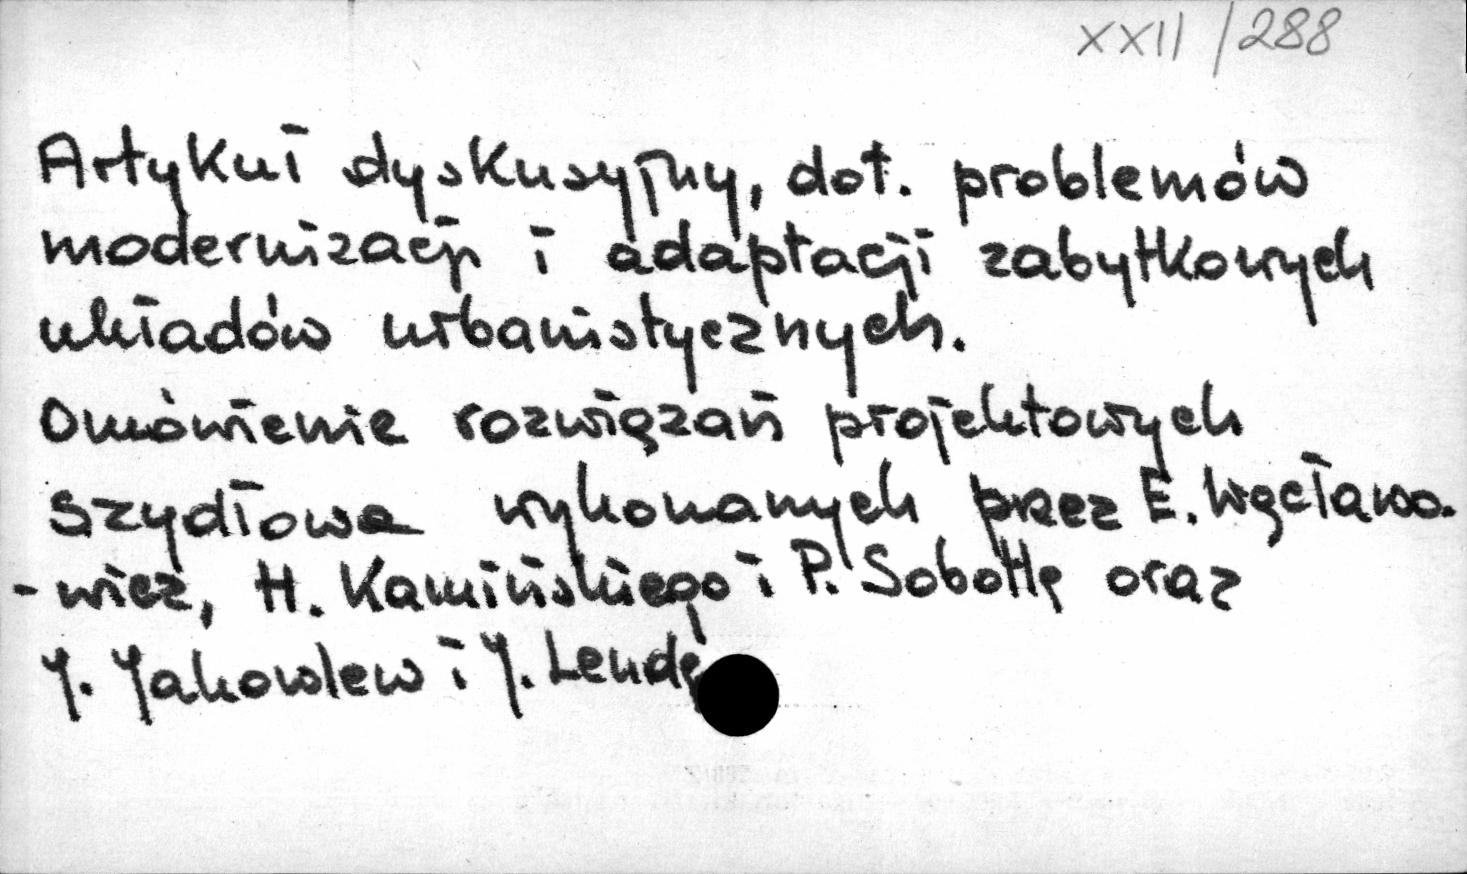 XXII/288
Artykuł dyskusyjny, dot. problemów
modernizacji i adaptacji zabytkowych
układów urbanistycznych.
Omówienie rozwiązań projektowych
Szydłowa wykonanych przez E. Węcławo-
-wicz, H. Kamińskiego i P. Sobottę oraz
J. Jakowlew i J. Lendę